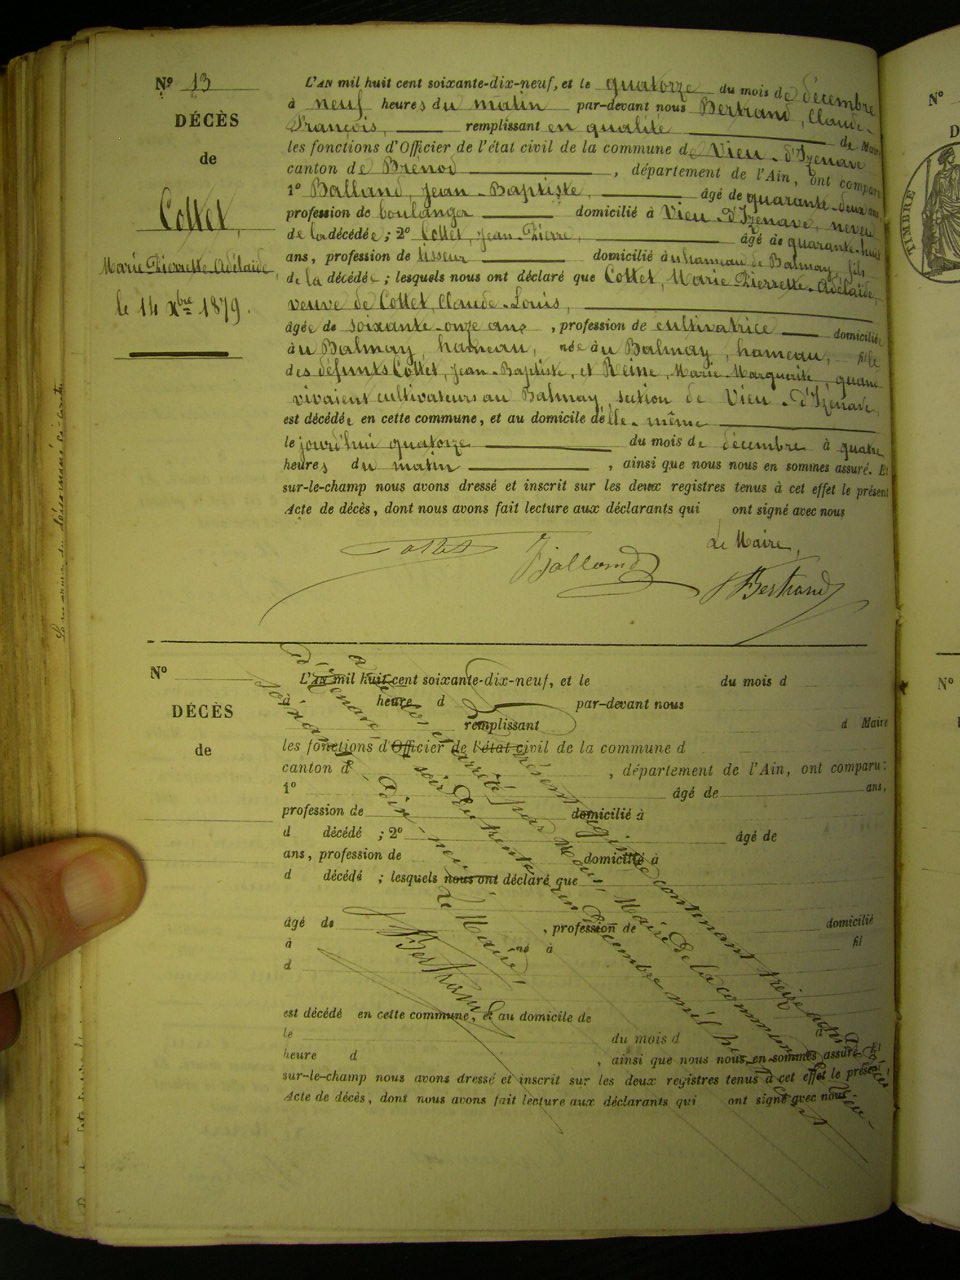 Nº 13
DÉCÈS
de
Collet,
Marie Pierrette Adélaïde,
le 14 Xbre 1879.
L'AN mil huit cent soixante-dix-neuf, et le quatorze du mois de décembre
à neuf heures du matin par-devant nous Bertrand, Claude-
François, remplissant en qualité de Maire
les fonctions d'Officier de l'état civil de la commune de Vieu-d'Izenave
canton de Brenod, département de l'Ain, ont comparu
1º Balland, Jean-Baptiste, âgé de quarante-deux ans
profession de boulanger domicilié à Vieu-d'Izenave, neveu
de la décédée; 2º Collet, Jean-Pierre, âgé de quarante-huit
ans, profession de tisseur domicilié au hameau de Balmay, fils
de la décédée; lesquels nous ont déclaré que Collet, Marie Pierrette-Adélaïde,
veuve de Collet, Claude-Louis,
âgée de soixante-onze ans, profession de cultivatrice domiciliée
au Balmay, hameau, née au Balmay, hameau, fille
des défunts Collet, Jean-Baptiste, et Reine, Marie-Marguerite, quand
vivaient cultivateurs au Balmay, section de Vieu-d'Izenave,
est décédée en cette commune, et au domicile d'elle-même
le jourd'hui quatorze du mois de décembre à quatre
heures du matin, ainsi que nous nous en sommes assuré. Et
sur-le-champ nous avons dressé et inscrit sur les deux registres tenus à cet effet le présent
Acte de décès, dont nous avons fait lecture aux déclarants qui ont signé avec nous
Le Maire,
Collet Balland Bertrand
Nº
DÉCÈS
de
L'AN mil huit cent soixante-dix-neuf, et le du mois d
à heure d par-devant nous
remplissant d Maire
les fonctions d'Officier de l'état civil de la commune d
canton d, département de l'Ain, ont comparu:
1º âgé de ans,
profession de domicilié à
d décédé; 2º âgé de
ans, profession de domicilié à
d décédé; lesquels nous ont déclaré que
âgé de, profession de domicilié
à né à fil
d
est décédé en cette commune, et au domicile de
le du mois d à
heure d, ainsi que nous nous en sommes assuré. Et
sur-le-champ nous avons dressé et inscrit sur les deux registres tenus à cet effet le présent
Acte de décès, dont nous avons fait lecture aux déclarants qui ont signé avec nous
présent registre contenant treize actes de décès
a été clos et arrêté par Nous, Maire de la commune de Vieu-
d'Izenave, soir du trente un Décembre mil huit cent
soixante-dix-neuf
Le Maire
Bertrand
Nº
TIMBRE
Nº